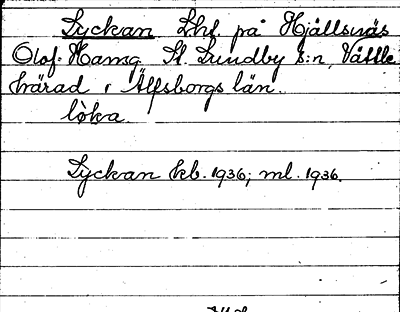 Lyckan Lht på Hjällsnäs
Olof-Hansg St. Lundby s:n, Vättle
härad i Älfsborgs län.
lò̀ka.
Lyckan kb. 1936; ml. 1936.